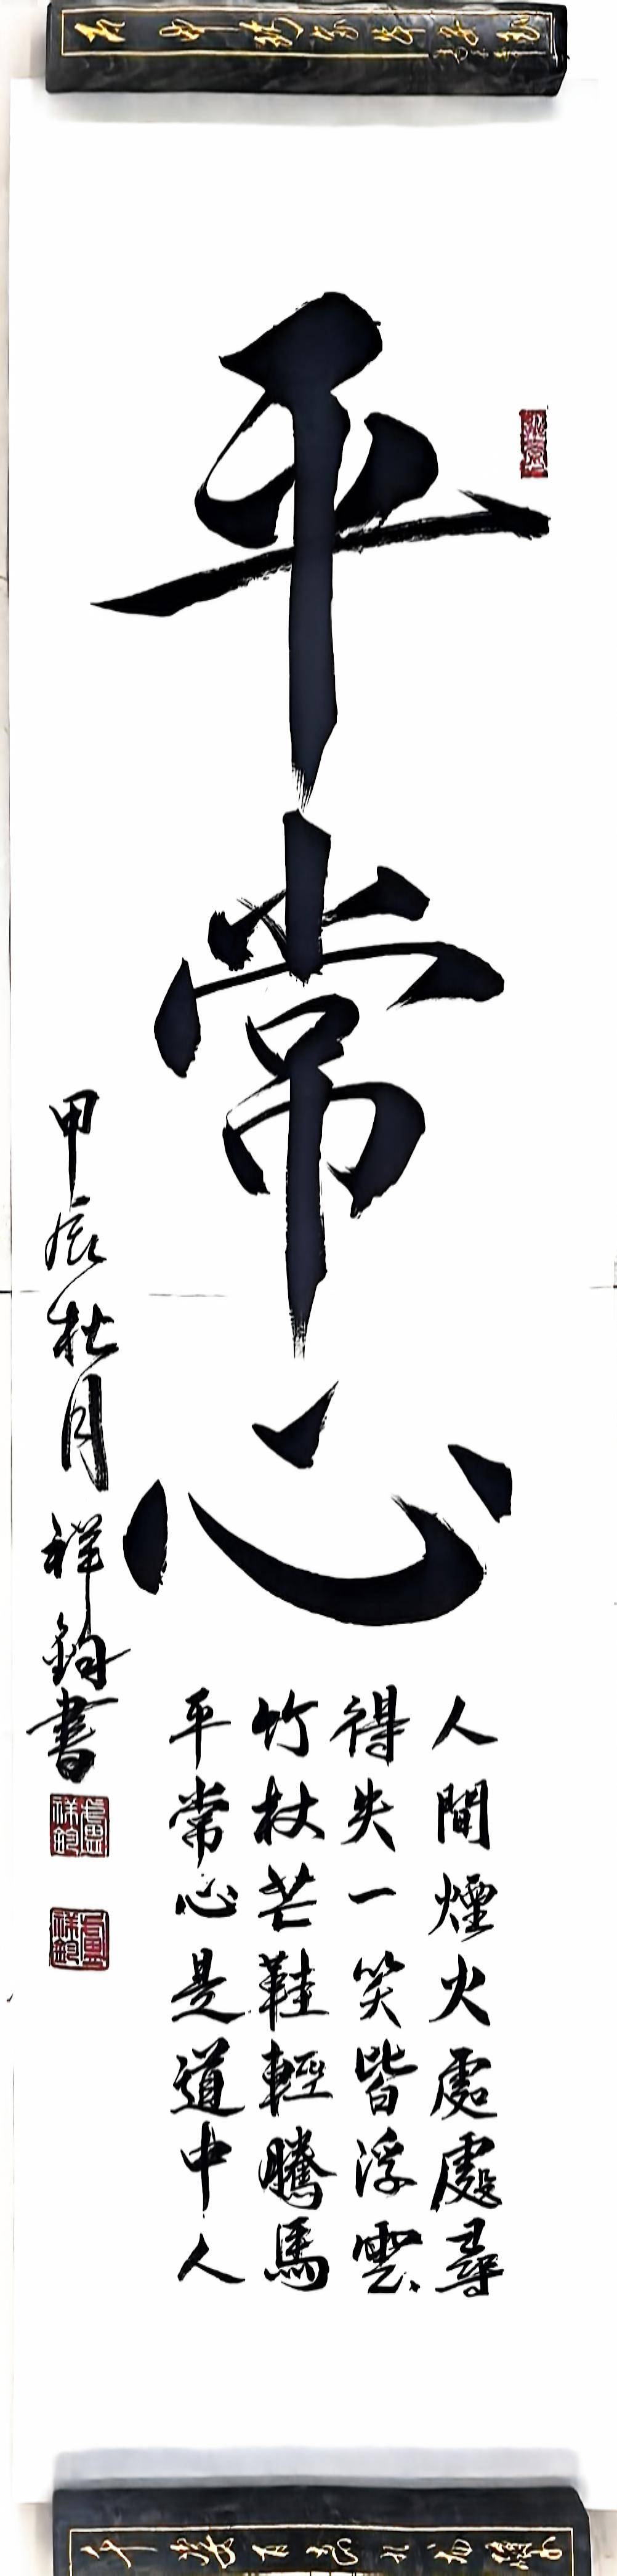 平常心
人間煙火處處尋
得失一笑皆浮雲
竹杖芒鞋輕騰馬
平常心是道中人
甲辰杜月祥鈞書